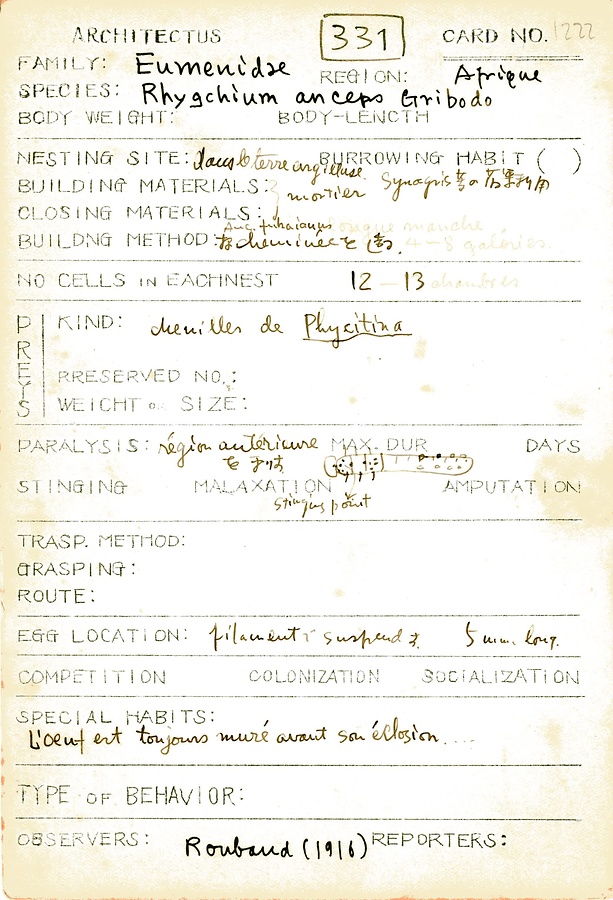 ARCHITECTUS 331 CARD NO. 1222
FAMILY: Eumenidae REGION: Afrique
SPECIES: Rhygchium anceps Gribodo
BODY WEIGHT: BODY-LENGTH
NESTING SITE: dans le terre argileuse BURROWING HABIT ( )
BUILDING MATERIALS: mortier Synagris
CLOSING MATERIALS:
longue manche
BUILDNG METHOD: cheminée 4-8 galéries.
NO CELLS IN EACHNEST 12-13 chambres
PREYS
KIND: chenilles de Phycitina
PRESERVED NO.:
WEICHT OR SIZE:
PARALYSIS: région antérieure MAX. DUR DAYS
STINGING MALAXATION AMPUTATION
stinging point
TRASP. METHOD:
GRASPING:
ROUTE:
EGG LOCATION: filament suspend 5 mm. long.
COMPETITION COLONIZATION SOCIALIZATION
SPECIAL HABITS:
L'oeuf est toujours muré avant son éclosion....
TYPE OF BEHAVIOR:
OBSERVERS: Roubaud (1916) REPORTERS: